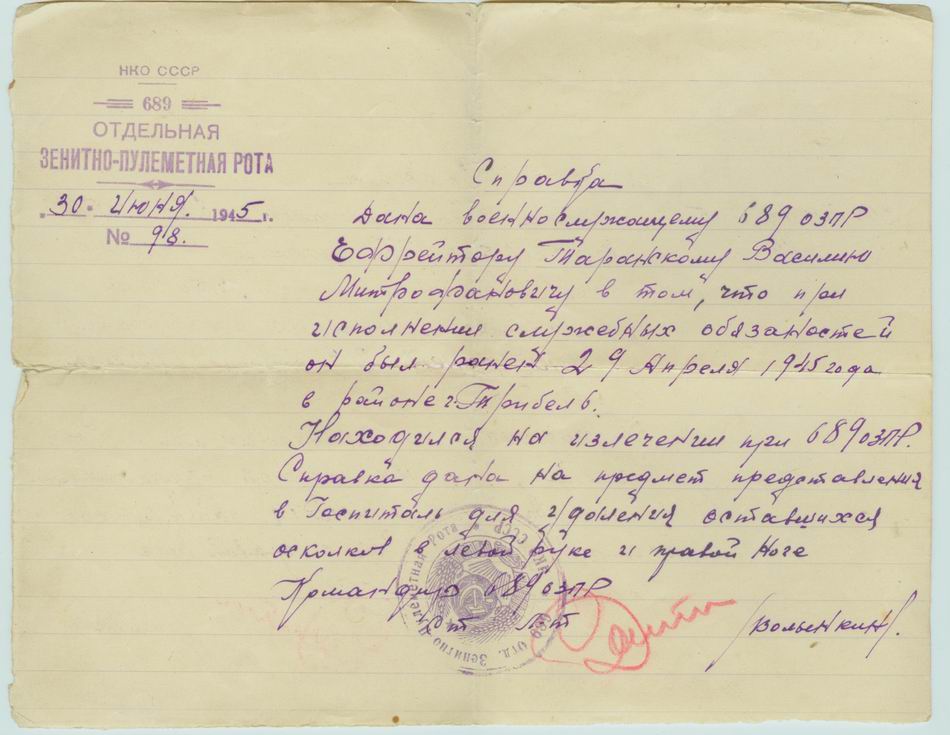 НКО СССР
689
ОТДЕЛЬНАЯ
ЗЕНИТНО-ПУЛЕМЕТНАЯ РОТА
"30" Июня 1945 г.
№ 98.
Справка
Дана военнослужащему 689 ОЗПР
Ефрейтору Таранскому Василию
Митрофановичу в том, что при
исполнении служебных обязаностей
он был ранен 29 Апреля 1945 года
в районе г. Трибель.
Находился на излечении при 689 ОЗПР.
Справка дана на предмет представления
в Госпиталь для удоления оставшихся
осколков в левой руке и правой ноге
Командир 689 ОЗПР
Ст Л-т /Волынкин/.
689 Отд. Зенитно Пулеметная Рота * НКО СССР